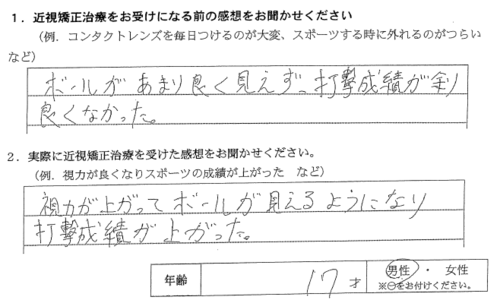 1．近視矯正治療をお受けになる前の感想をお聞かせください
（例．コンタクトレンズを毎日つけるのが大変、スポーツする時に外れるのがつらい
など）
ボールがあまり良く見えず、打撃成績が余り
良くなかった。
2．実際に近視矯正治療を受けた感想をお聞かせください。
（例．視力が良くなりスポーツの成績が上がった など）
視力が上がってボールが見えるようになり
打撃成績が上がった。
年齢 17才 男性 ・ 女性
※○をお付けください。